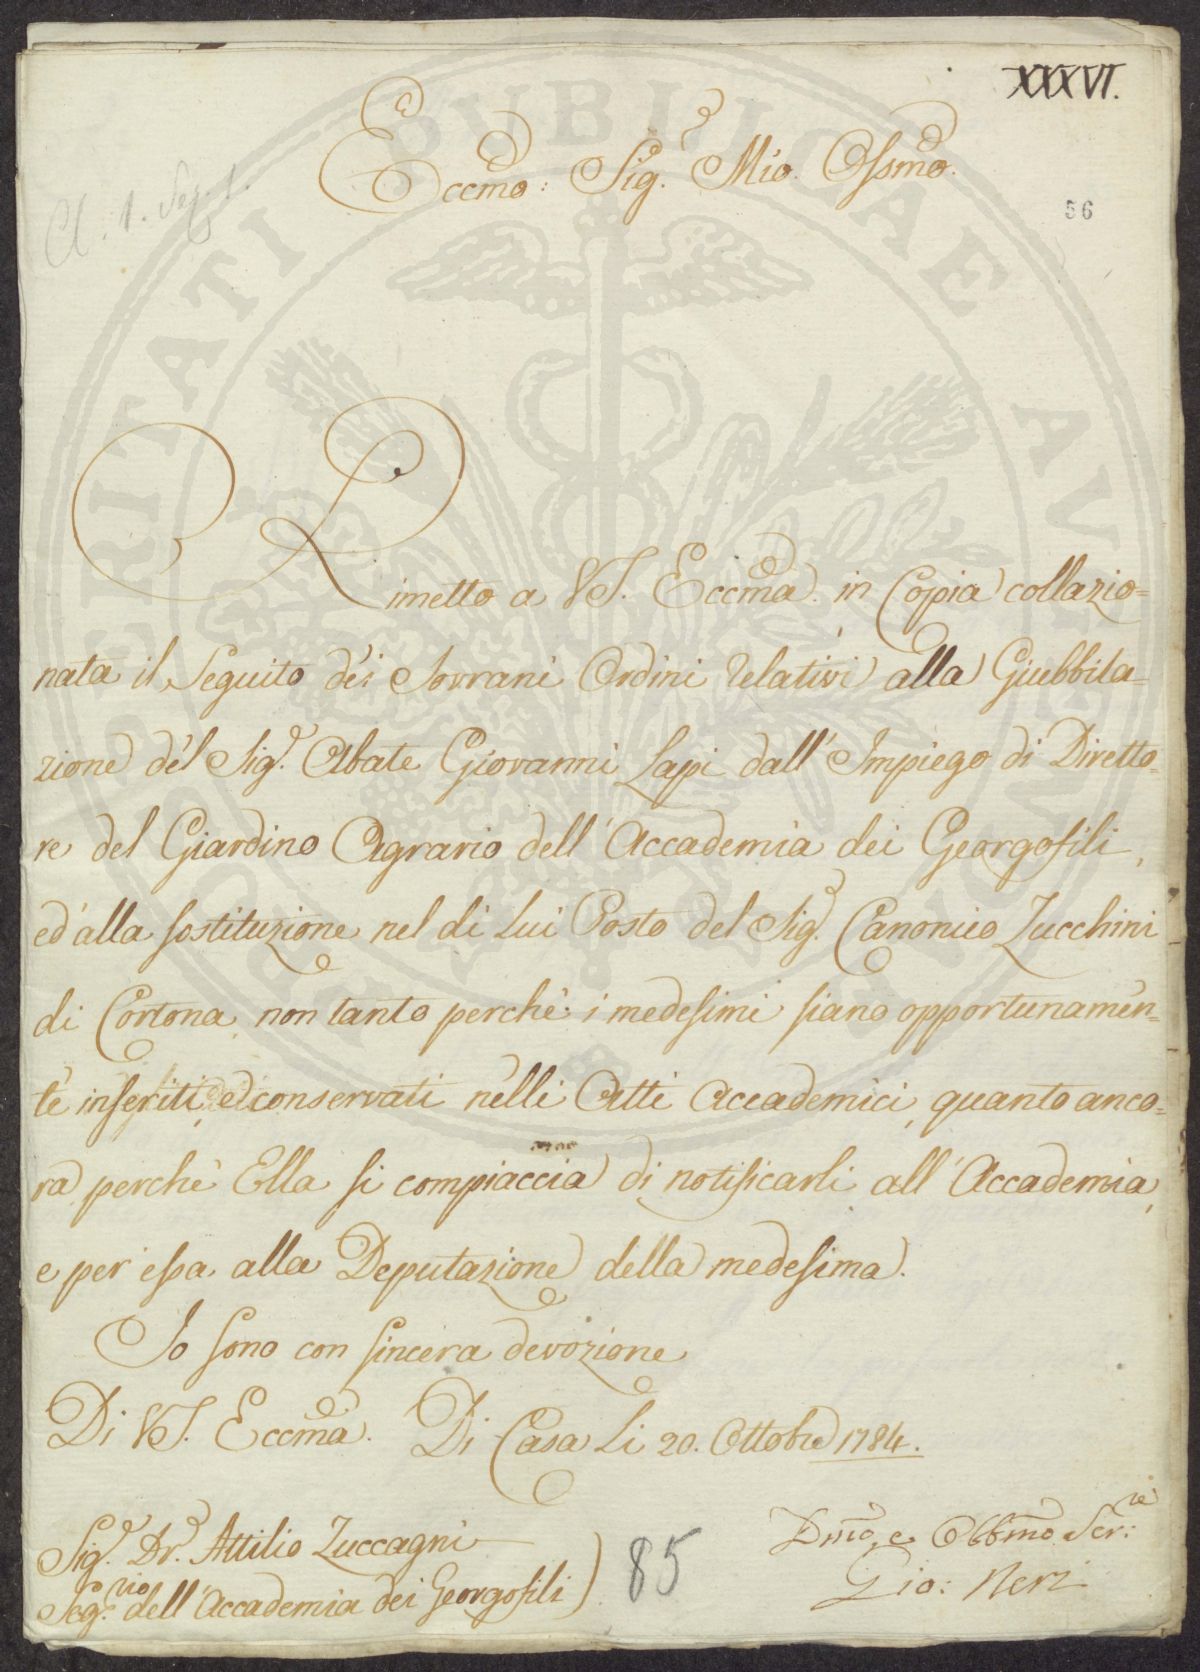 XXXVI.
Eccmo: Sig.e Mio Ossmo.
56
Cl. 1. Seg. 1.
Rimetto a VS. Eccma. in Copia collazio=
nata il Seguito dei Sovrani Ordini relativi alla Giubbila=
zione del Sig.e Abate Giovanni Lapi dall' Impiego di Diretto=
re del Giardino Agrario dell' Accademia dei Georgofili,
ed alla sostituzione nel di Lui Posto del Sig.e Canonico Zucchini
di Cortona, non tanto perchè i medesimi siano opportunamen=
te inseriti, e conservati nelli Atti Accademici, quanto anco=
ra perchè Ella si compiaccia di notificarli all' Accademia,
e per essa alla Deputazione della medesima.
Io sono con sincera devozione
Di VS. Eccma. Di Casa Li 20. Ottobre 1784.
Sig.e Dr.e Attilio Zuccagni
Seg.rio dell' Accademia dei Georgofili)
85
Dmo, e Obbmo Ser:re
Gio: Neri
PROSPERITATI PUBLICAE AUGENDAE